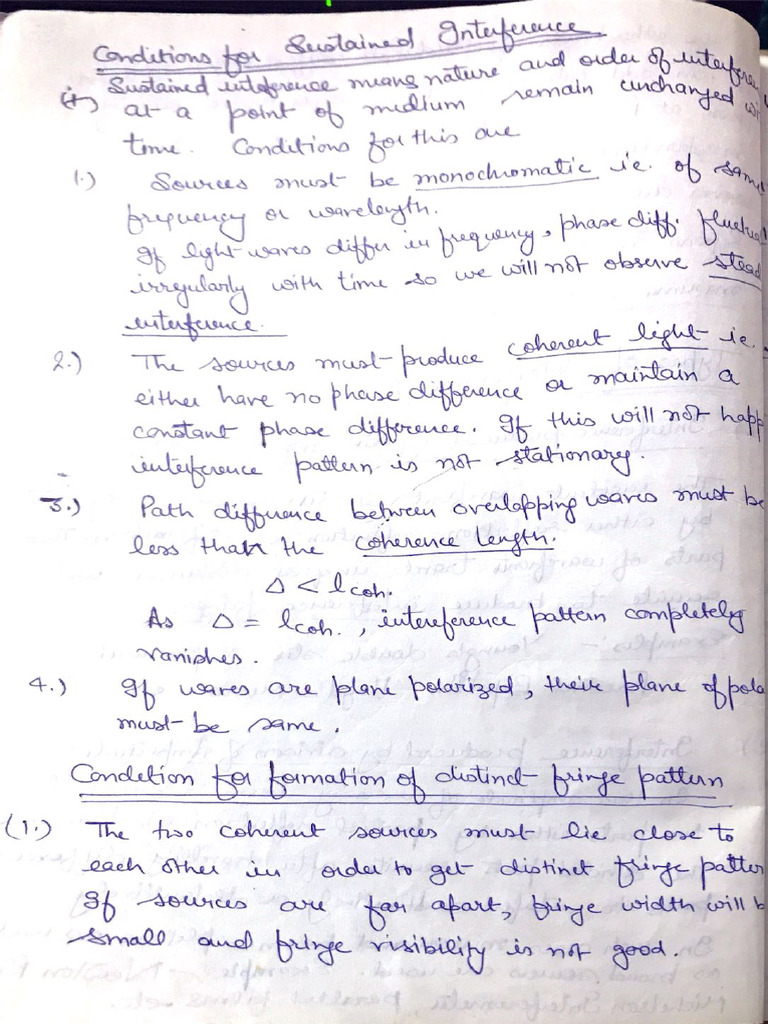 Conditions for Sustained Interference
(*) Sustained inteference means nature and order of interferen
at a point of medium remain unchanged wi
time. Conditions for this are
1.) Sources must be monochromatic i.e. of same
frequency or wavelength.
If light waves differ in frequency, phase diff. fluctua
irregularly with time so we will not observe stead
interference.
2.) The sources must produce coherent light i.e.
either have no phase difference or maintain a
constant phase difference. If this will not happ
interference pattern is not stationary.
3.) Path difference between overlapping waves must be
less than the coherence length.
Δ < lcoh.
As Δ = lcoh., intereference pattern completely
vanishes.
4.) If waves are plane polarized, their plane of pola
must be same.
Condition for formation of distinct fringe pattern
(1.) The two coherent sources must lie close to
each other in order to get distinct fringe patter
If sources are far apart, fringe width will b
small and fringe visibility is not good.